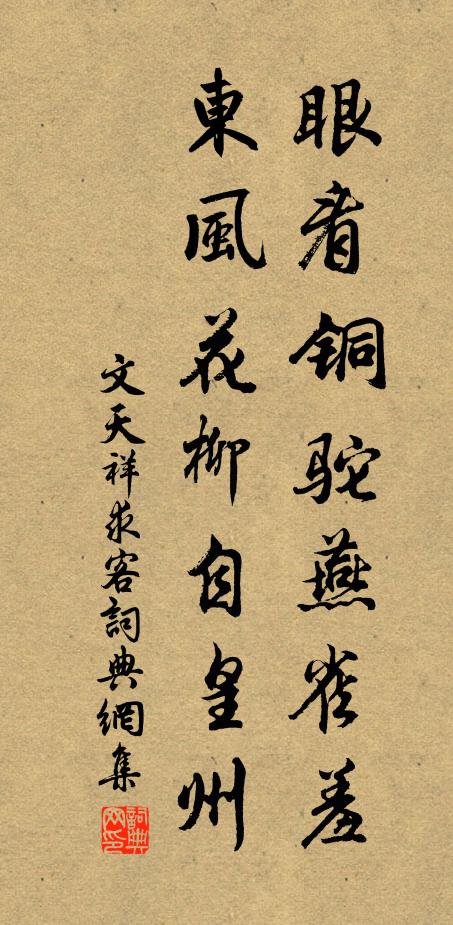 眼看铜驼燕雀羞
東風花柳自皇州
文天祥求客詞典網集
詞典
网印